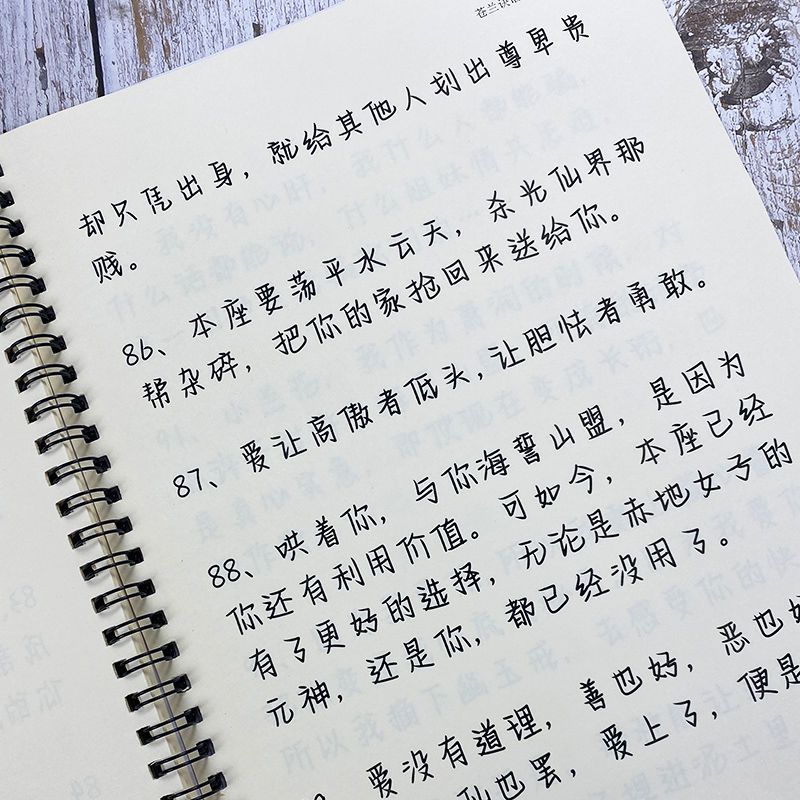 苍兰诀
却只凭出身，就给其他人划出尊卑贵
贱。
86、本座要荡平水云天，杀光仙界那
帮杂碎，把你的家抢回来送给你。
87、爱让高傲者低头，让胆怯者勇敢。
88、哄着你，与你海誓山盟，是因为
你还有利用价值。可如今，本座已经
有了更好的选择，无论是赤地女子的
元神，还是你，都已经没用了。
爱没有道理，善也好，恶也好
也罢，爱上了，便是